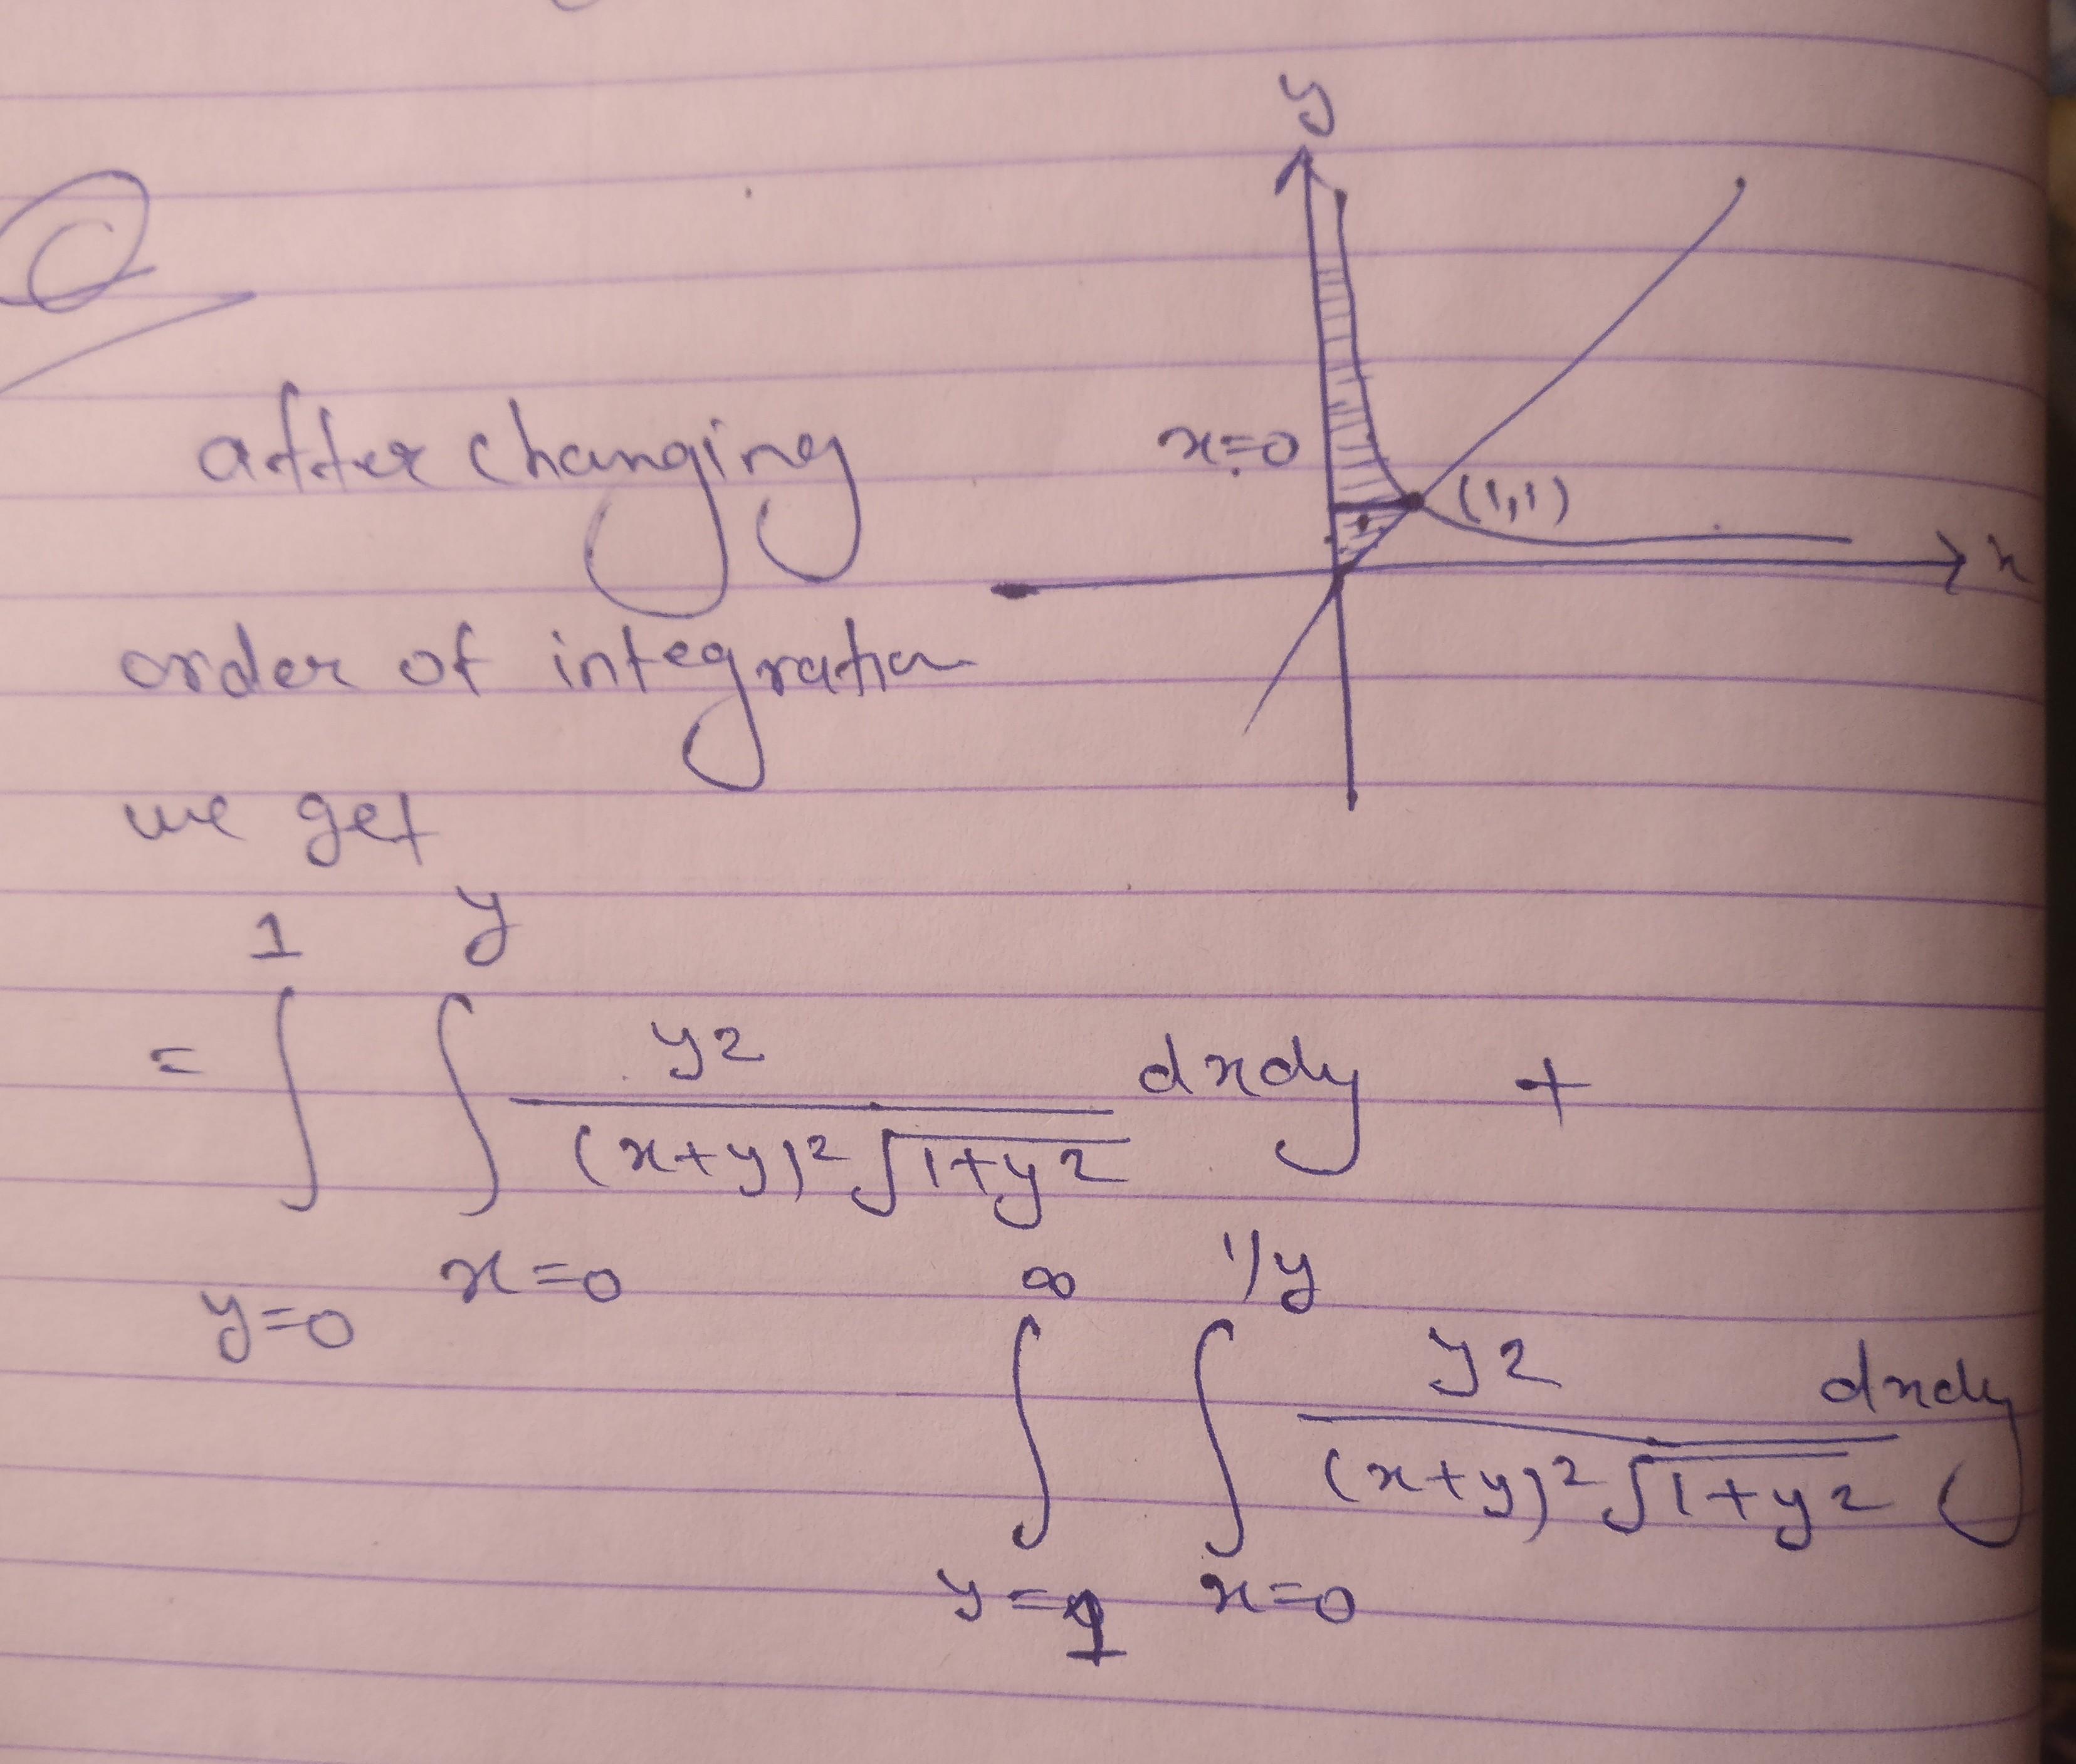 Q
y
after changing
x=0
(1,1)
x
order of integration
we get
= ∫_{y=0}^{1} ∫_{x=0}^{y} y² / ((x+y)² √(1+y²)) dxdy +
∫_{y=1}^{∞} ∫_{x=0}^{1/y} y² / ((x+y)² √(1+y²)) dxdy